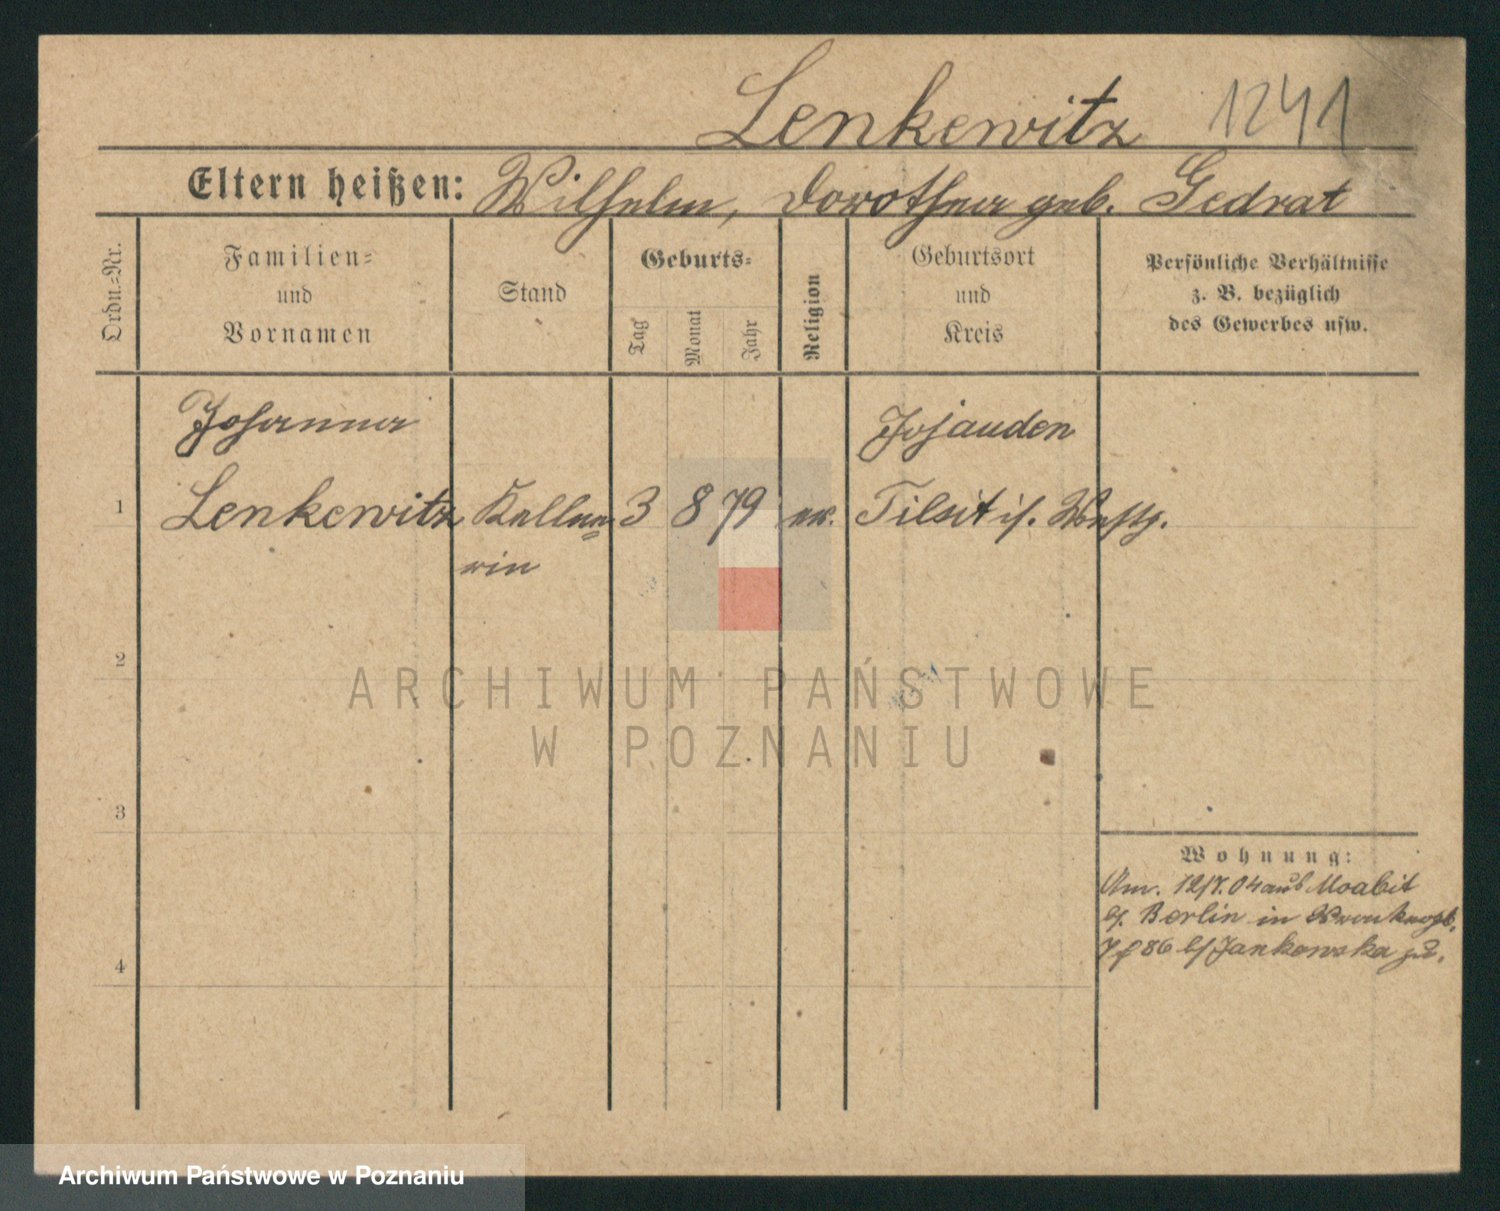 Lenkewitz 1241
Eltern heißen: Wilhelm, Dorothea geb. Gedrat
Ordn.=Nr.
Familien= und Vornamen
Stand
Geburts=
Tag
Monat
Jahr
Religion
Geburtsort und Kreis
Persönliche Verhältnisse
z. B. bezüglich
des Gewerbes usw.
Johanna
Jojauden
1 Lenkewitz Kellne= 3 8 79 ev. Tilsit
rin
2
ARCHIWUM PAŃSTWOWE
W POZNANIU
3
Wohnung:
An. 12/7.04 aus Moabit
b/. Berlin in
86 b/ Jankowska zu.
4
Archiwum Państwowe w Poznaniu